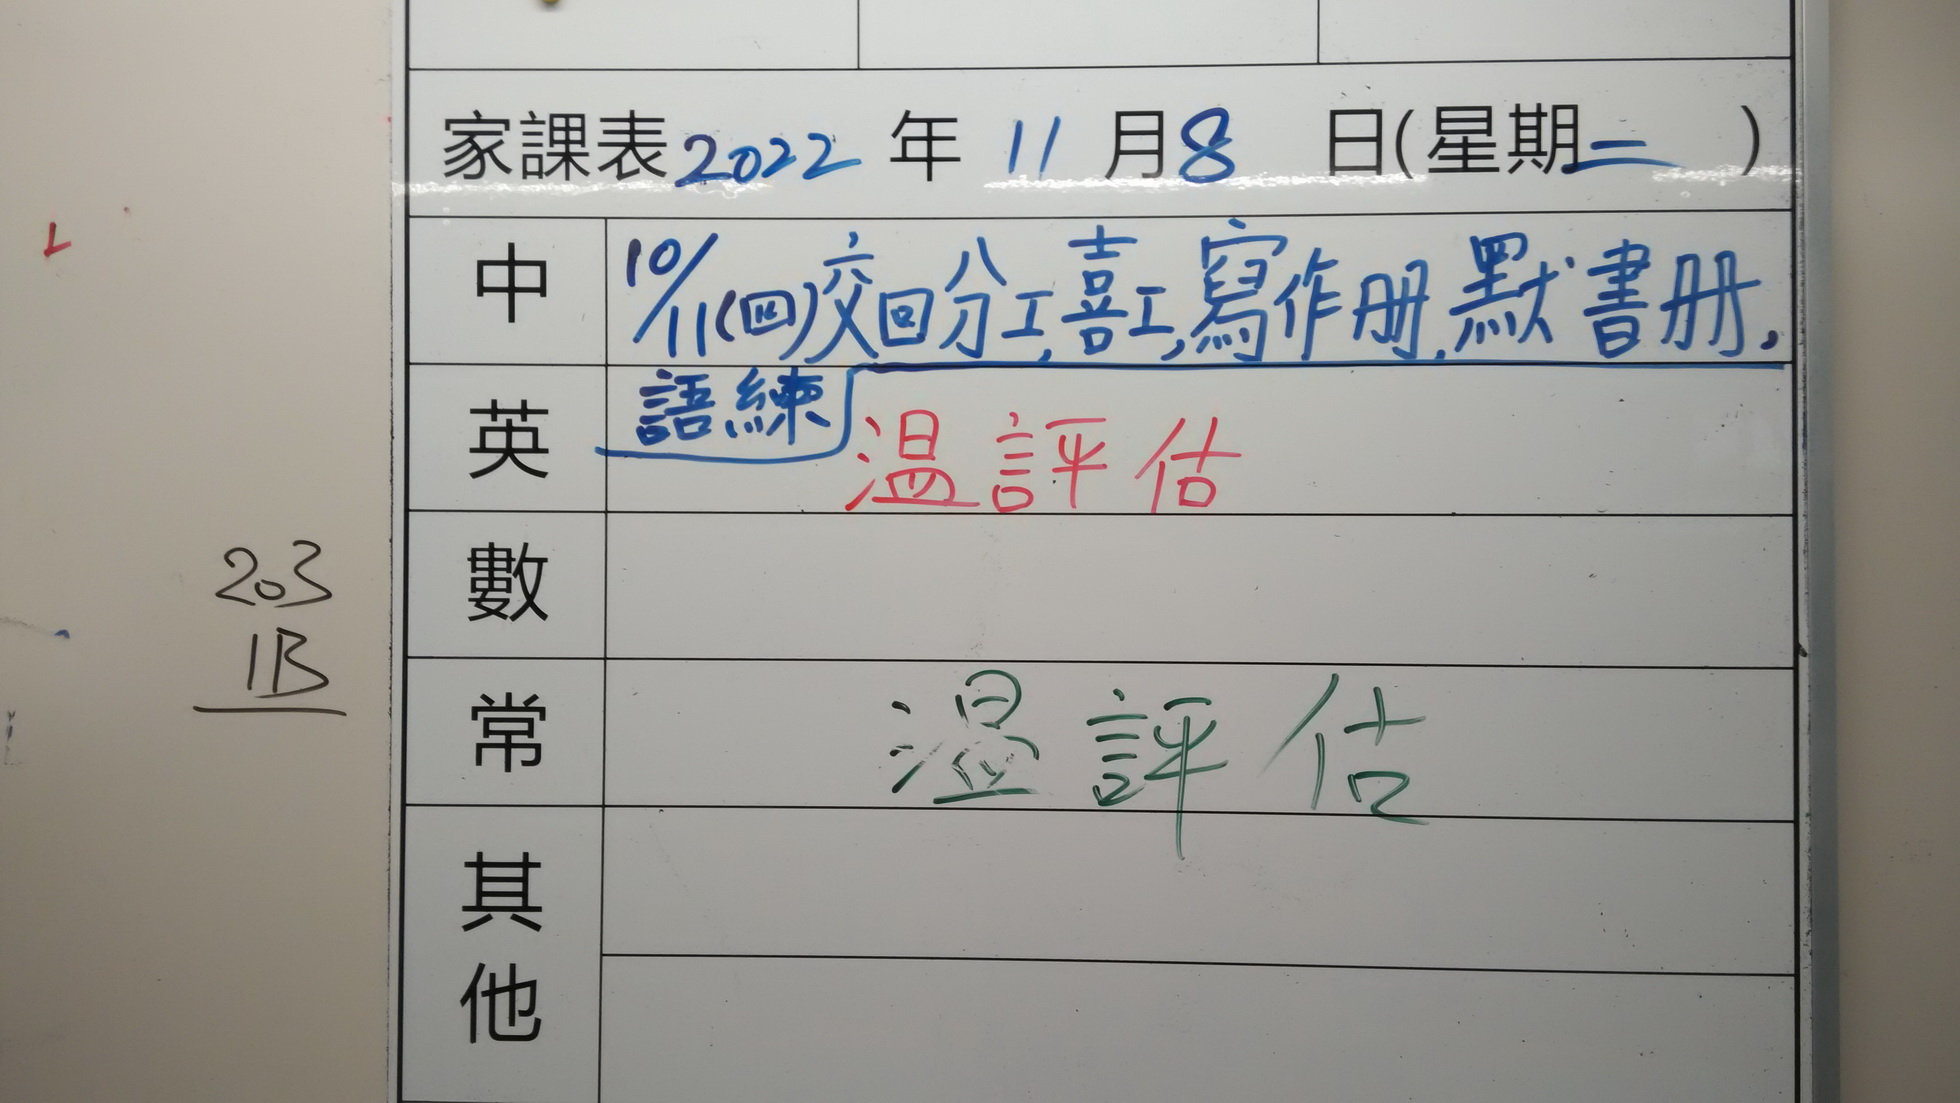 家課表2022年11月8日(星期二)
中 10/11(四)交回分工,喜工,寫作册,默書册,
語練
英 温評估
數
常 温評估
其他
203
1B